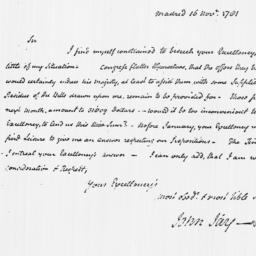 Madrid 16 Novr. 1781
Sir
I find myself constrained to beseech your Excellency
little of my situation. Congress flatter themselves, that the offers they
would certainly induce his Majesty, at least to assist them with some
Residue of the Bills drawn upon me, remain to be provided for. Those
next month, amount to 31809 dollars. would it be too inconvenient to
Excellency, to lend us this Sum? Before January, your Excellency
find Leisure to give me an answer respecting our Propositions. The
I entreat your Excellency's answer. I can only add, that I am
consideration & Respect,
Your Excellency's
most obedt. & most hble
John Jay